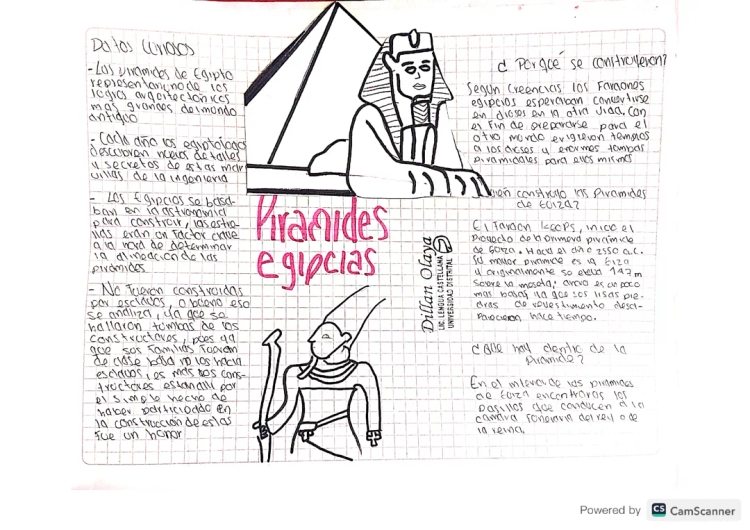 Datos curiosos
- Las piramides de Egipto
representan uno de los
logros arquitectonicos
mas grandes del mundo
antiguo
- Cada año los egiptologos
descubren nuevos detalles
y secretos de estas mar
villas de la ingenieria
- Los Egipcios se basa-
ban en la astronomia
para construir, las estre-
llas eran un factor clave
a la hora de determinar
la alineacion de las
piramides
- No fueron construidas
por esclavos, o bueno eso
se analiza, ya que se
hallaron tumbas de los
constructores, pues ya
que sus familias fueran
de clase baja no los hacia
esclavos, es mas los cons-
tructores estan alli por
el simple hecho de
haber participado en
la construccion de estas
fue un honor
Piramides
egipcias
Dillan Olaya
LIC. LENGUA CASTELLANA
UNIVERSIDAD DISTRITAL
¿ Por qué se construyeron?
Según creencias los Faraones
egipcios esperaban convertirse
en dioses en la otra vida. Con
el fin de prepararse para el
otro mundo erigieron templos
a los dioses y enormes tumbas
piramidales para ellos mismos
construio las Piramides
de Guiza?
El Faraon Keops, inicio el
proyecto de la primera piramide
de Guiza. Hacia el año 2550 a.C.
Su mayor piramide es la Guiza
y originalmente se eleva 147m
sobre la meseta, ahora es un poco
mas baja, ya que sus lisas pie-
dras de revestimiento desa-
parecieron hace tiempo.
¿ Que hay dentro de la
piramide?
En el interior de las piramides
de Guiza encontraras los
pasillos que conducen a la
camara funeraria del rey o de
la reina.
Powered by CS CamScanner